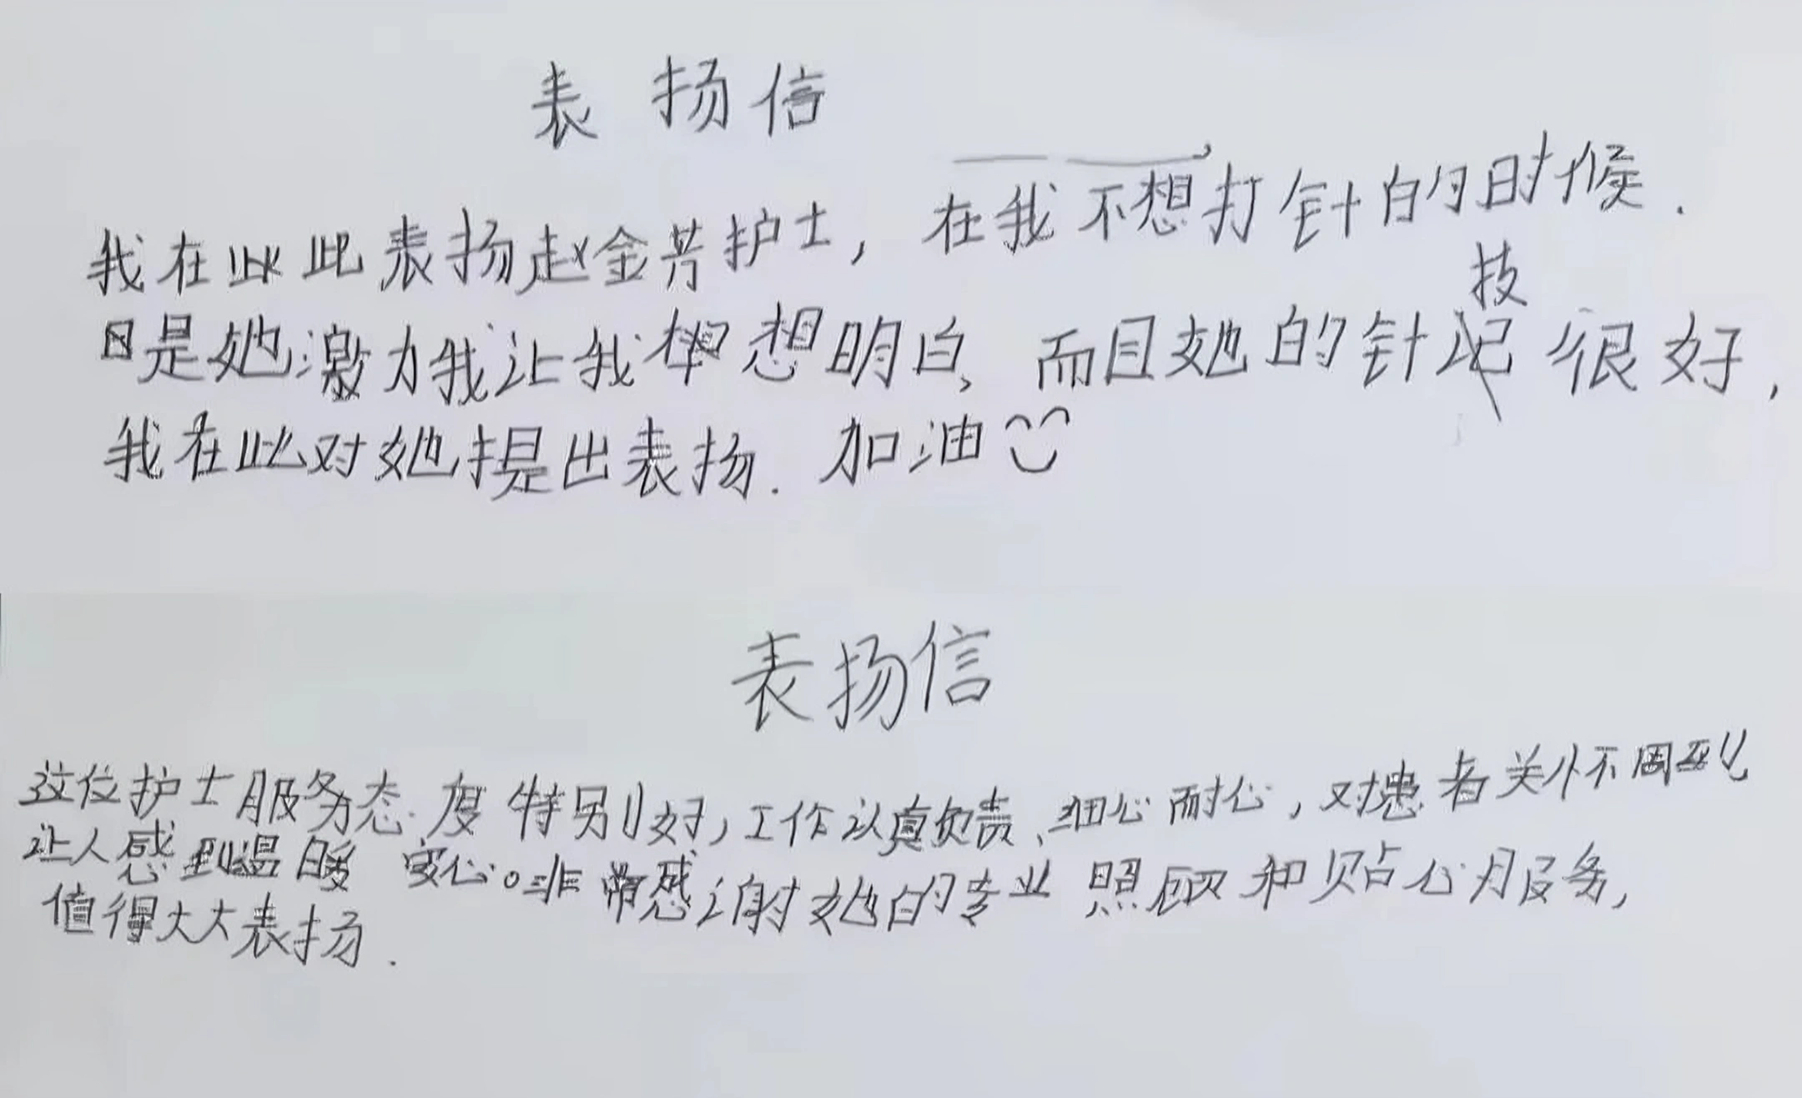 表扬信
我在此表扬赵金芳护士，在我不想打针的时候.
是她激力我让我想明白，而且她的针技很好，
我在此对她提出表扬.加油
表扬信
这位护士服务态度特别好，工作认真负责、细心耐心，对患者关怀周到
让人感到温暖 安心。非常感谢她的专业照顾和贴心服务，
值得大大表扬.